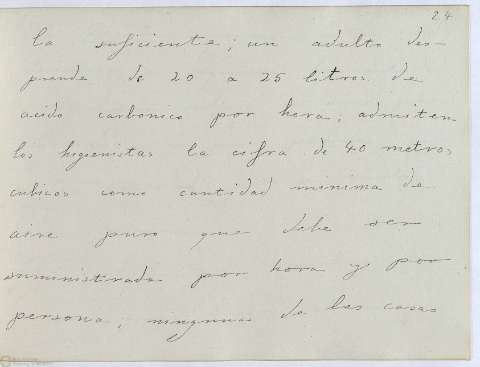 24
la suficiente; un adulto des-
prende de 20 a 25 litros de
acido carbonico por hora; admiten
los higienistas la cifra de 40 metros
cubicos como cantidad minima de
aire puro que debe ser
suministrada por hora y por
persona; ninguna de las casas